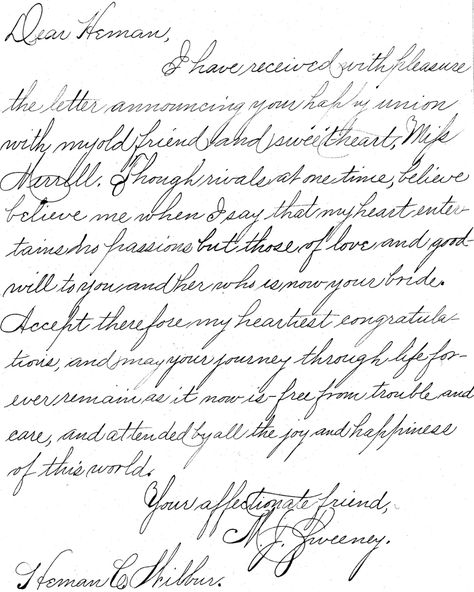 Dear Heman,
I have received with pleasure
the letter announcing your happy union
with my old friend and sweetheart, Miss
Harrell. Though rivals at one time, believe
believe me when I say that my heart enter-
tains no passions but those of love and good-
will to you and her who is now your bride.
Accept therefore my heartiest congratula-
tions, and may your journey through life for-
ever remain as it now is-free from trouble and
care, and attended by all the joy and happiness
of this world.
Your affectionate friend,
M. J. Sweeney.
Heman C Wilbur.